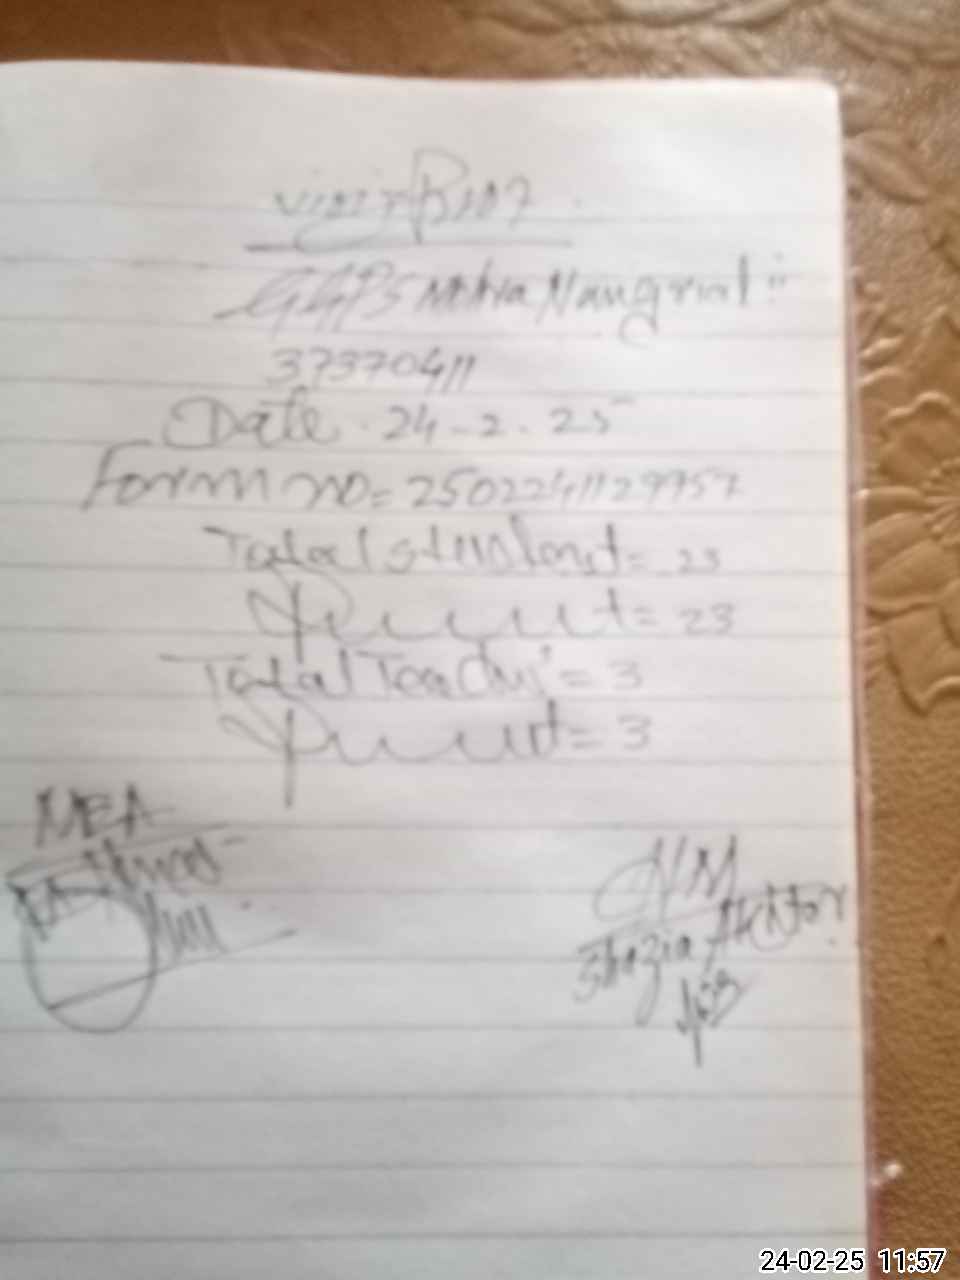 GGPS Mohra Nangrial
37370411
Date . 24 - 2 . 25
Form no = 2502241129957
Total student = 23
Present = 23
Total Teacher = 3
Present = 3
MEA
H/M
Shazia Akhtar
24-02-25 11:57